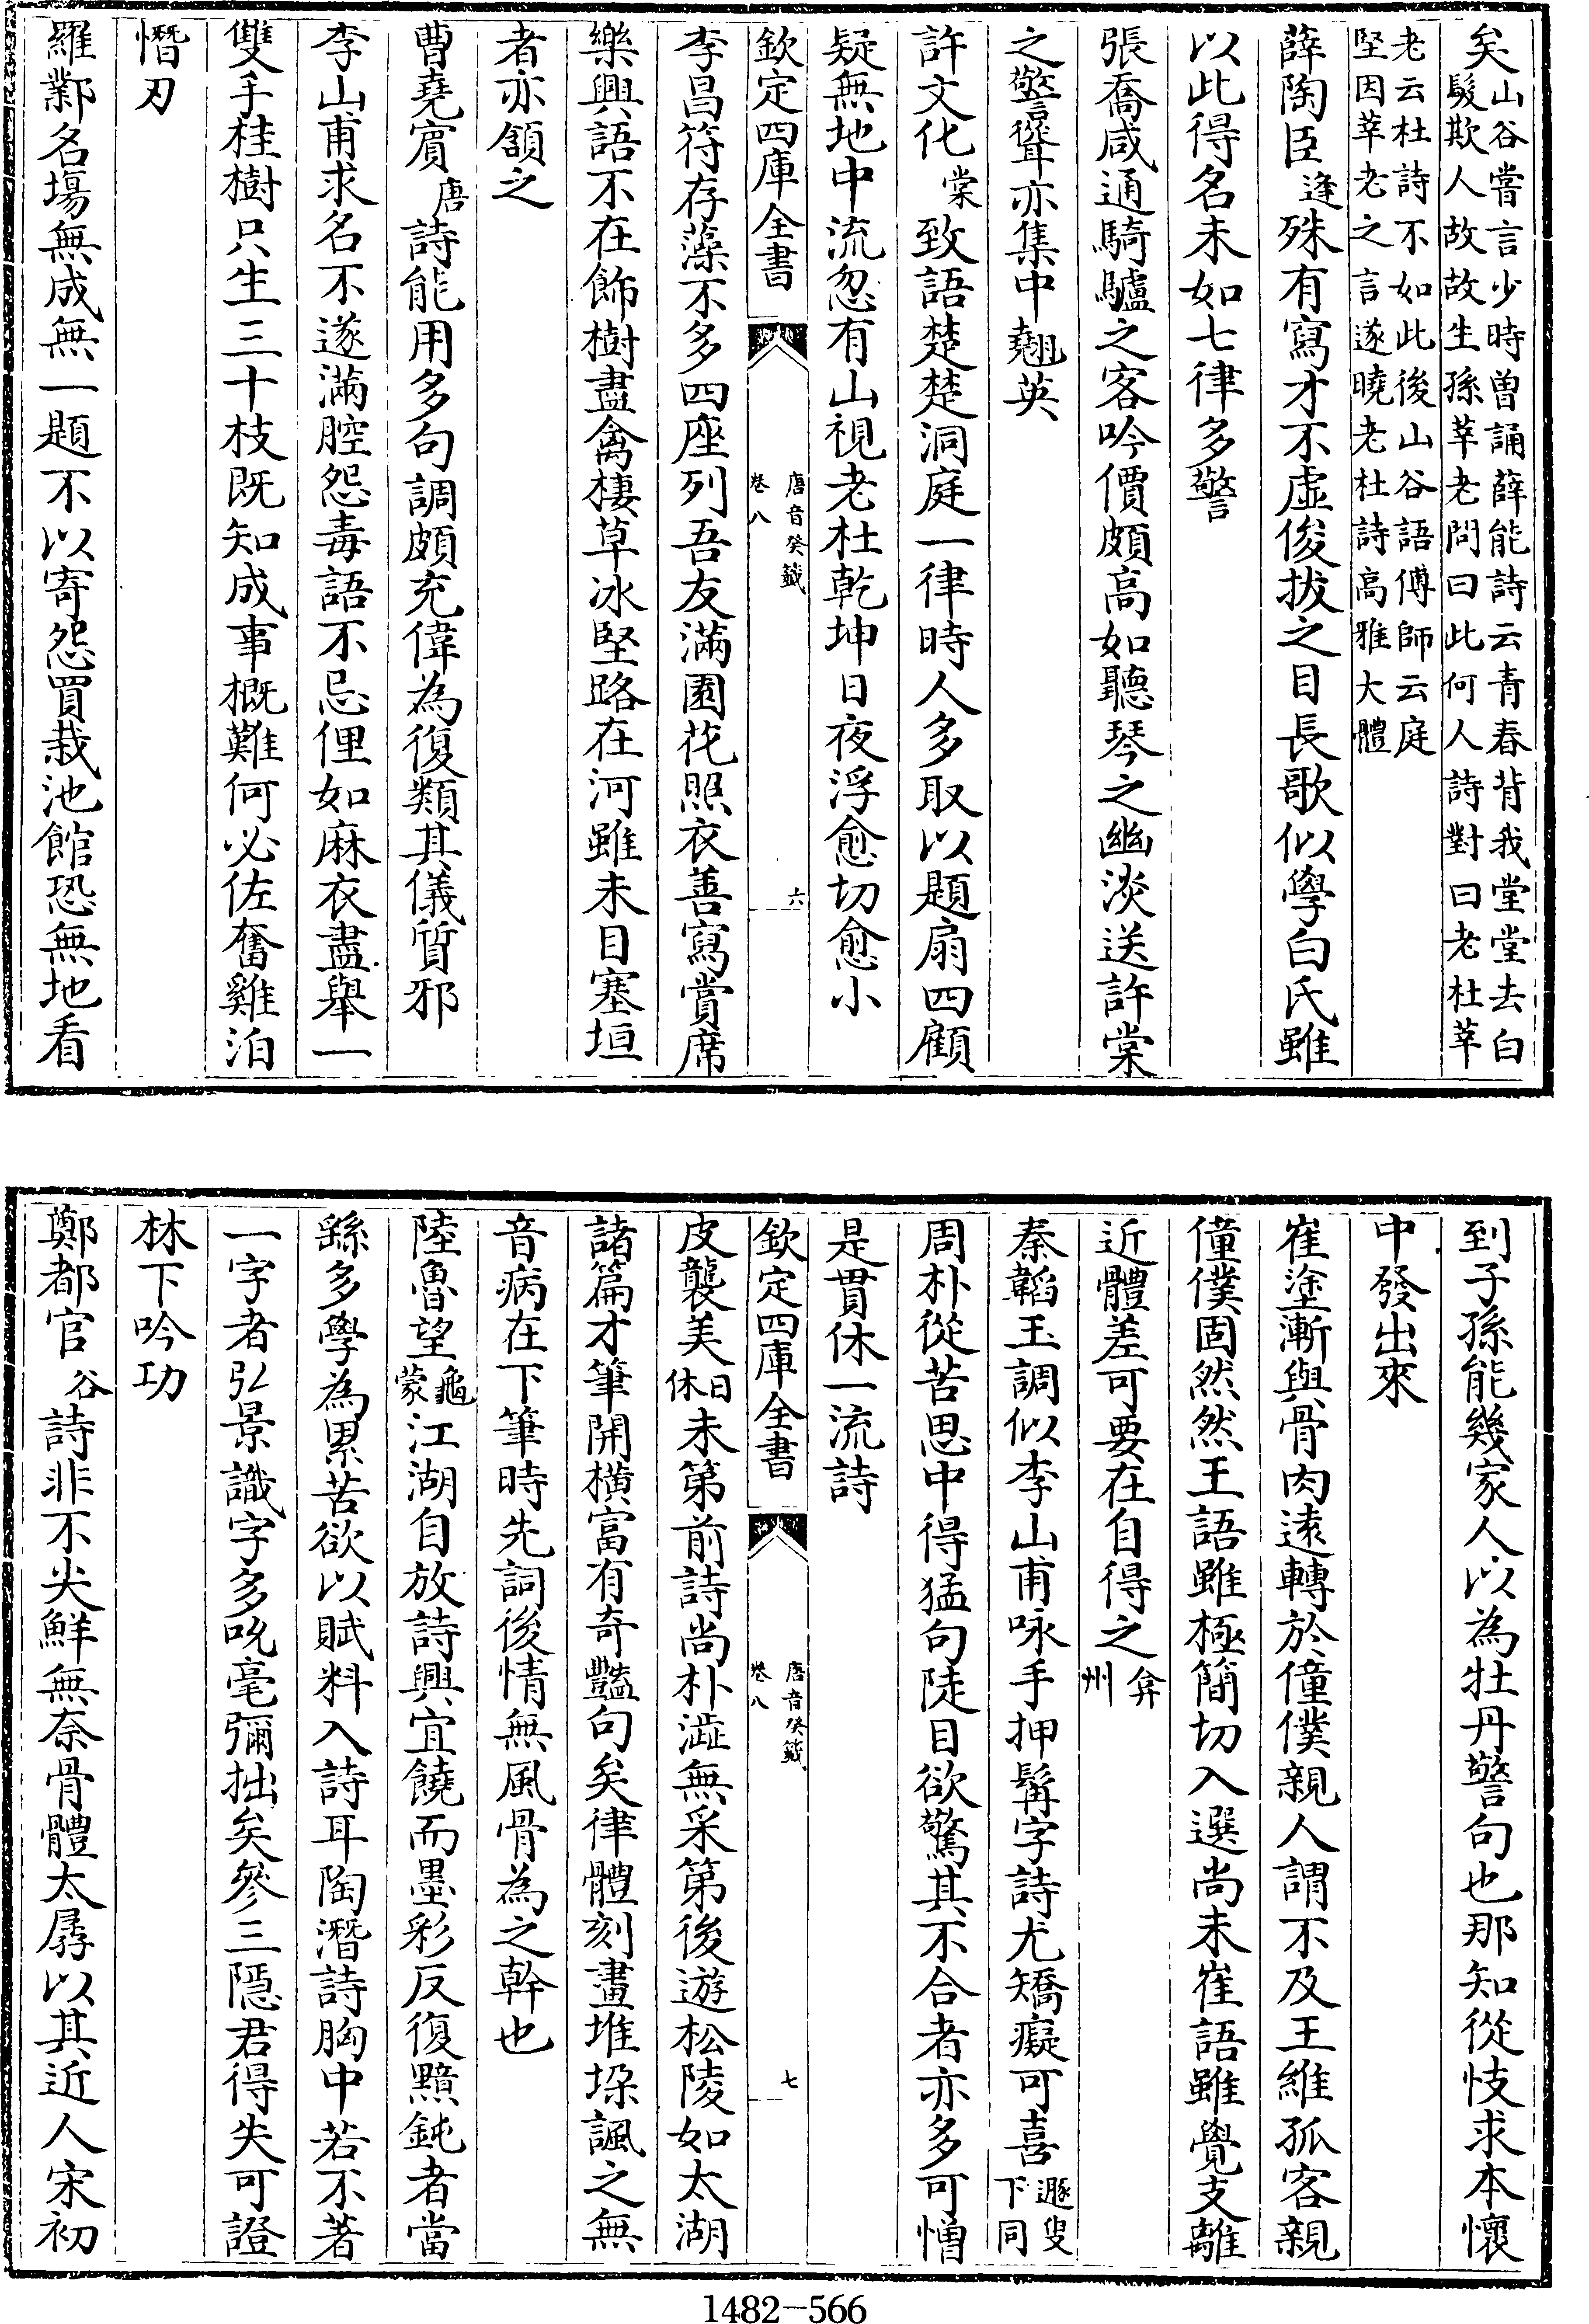 矣山谷嘗言少時曽誦薛能詩云青春背我堂堂去白
髮欺人故故生孫莘老問曰此何人詩對曰老杜莘
老云杜詩不如此後山谷語傅師云庭
堅因莘老之言遂曉老杜詩高雅大體
薛陶臣逢殊有寫才不虛俊拔之目長歌似學白氏雖
以此得名未如七律多警
張喬咸通騎驢之客吟價頗高如聽琴之幽淡送許棠
之警聳亦集中翹英
許文化棠致語楚楚洞庭一律時人多取以題扇四顧
疑無地中流忽有山視老杜乾坤日夜浮愈切愈小
欽定四庫全書
唐音癸籤
卷八
六
李昌符存藻不多四座列吾友滿園花照衣善寫賞席
樂興語不在飾樹盡禽棲草冰堅路在河雖未目塞垣
者亦頷之
曹堯賔唐詩能用多句調頗充偉為復類其儀質邪
李山甫求名不遂滿腔怨毒語不忌俚如麻衣盡舉一
雙手桂樹只生三十枝既知成事概難何必佐奮雞泊
憯刃
羅鄴名塲無成無一題不以寄怨買栽池館恐無地看
到子孫能幾家人以為牡丹警句也那知從忮求本懷
中發出來
崔塗漸與骨肉逺轉於僮僕親人謂不及王維孤客親
僮僕固然然王語雖極簡切入選尚未崔語雖覺支離
近體差可要在自得之弇
州
秦韜玉調似李山甫咏手押髯字詩尤矯癡可喜遯叟
下同
周朴從苦思中得猛句陡目欲驚其不合者亦多可憎
是貫休一流詩
欽定四庫全書
唐音癸籤
卷八
七
皮襲美日
休未第前詩尚朴澁無采第後遊松陵如太湖
諸篇才筆開橫富有奇豔句矣律體刻畫堆垜諷之無
音病在下筆時先詞後情無風骨為之幹也
陸魯望龜
蒙江湖自放詩興宜饒而墨彩反復黯鈍者當
繇多學為累苦欲以賦料入詩耳陶潛詩胸中若不著
一字者弘景識字多吮毫彌拙矣參三隱君得失可證
林下吟功
鄭都官谷詩非不尖鮮無奈骨體太孱以其近人宋初
1482—566